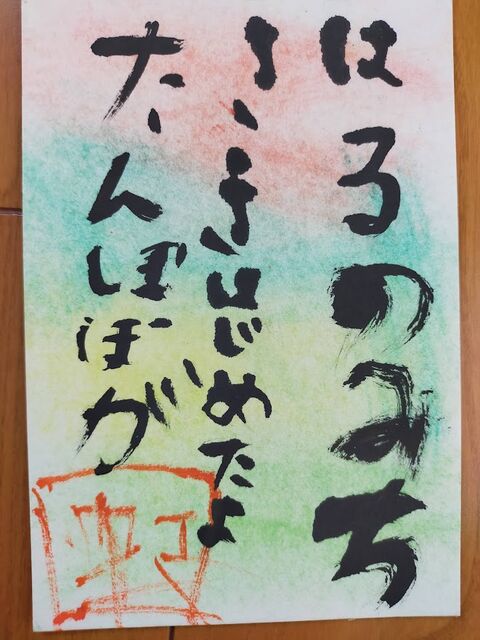 はるのみち
さきはじめたよ
たんぽぽが